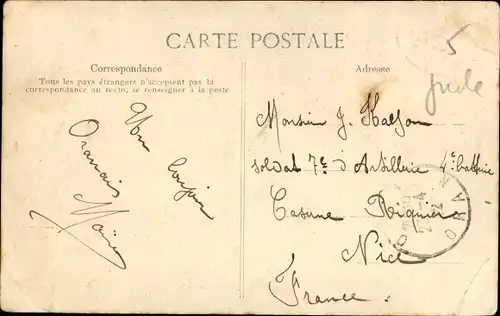 CARTE POSTALE
Correspondance
Tous les pays étrangers n'acceptent pas la
correspondance au recto, se renseigner à la poste
Adresse
5
Oranais
Monsieur J.
soldat 7e d'Artillerie 4e batterie
Caserne Riquier
Nice
France.
ORAN